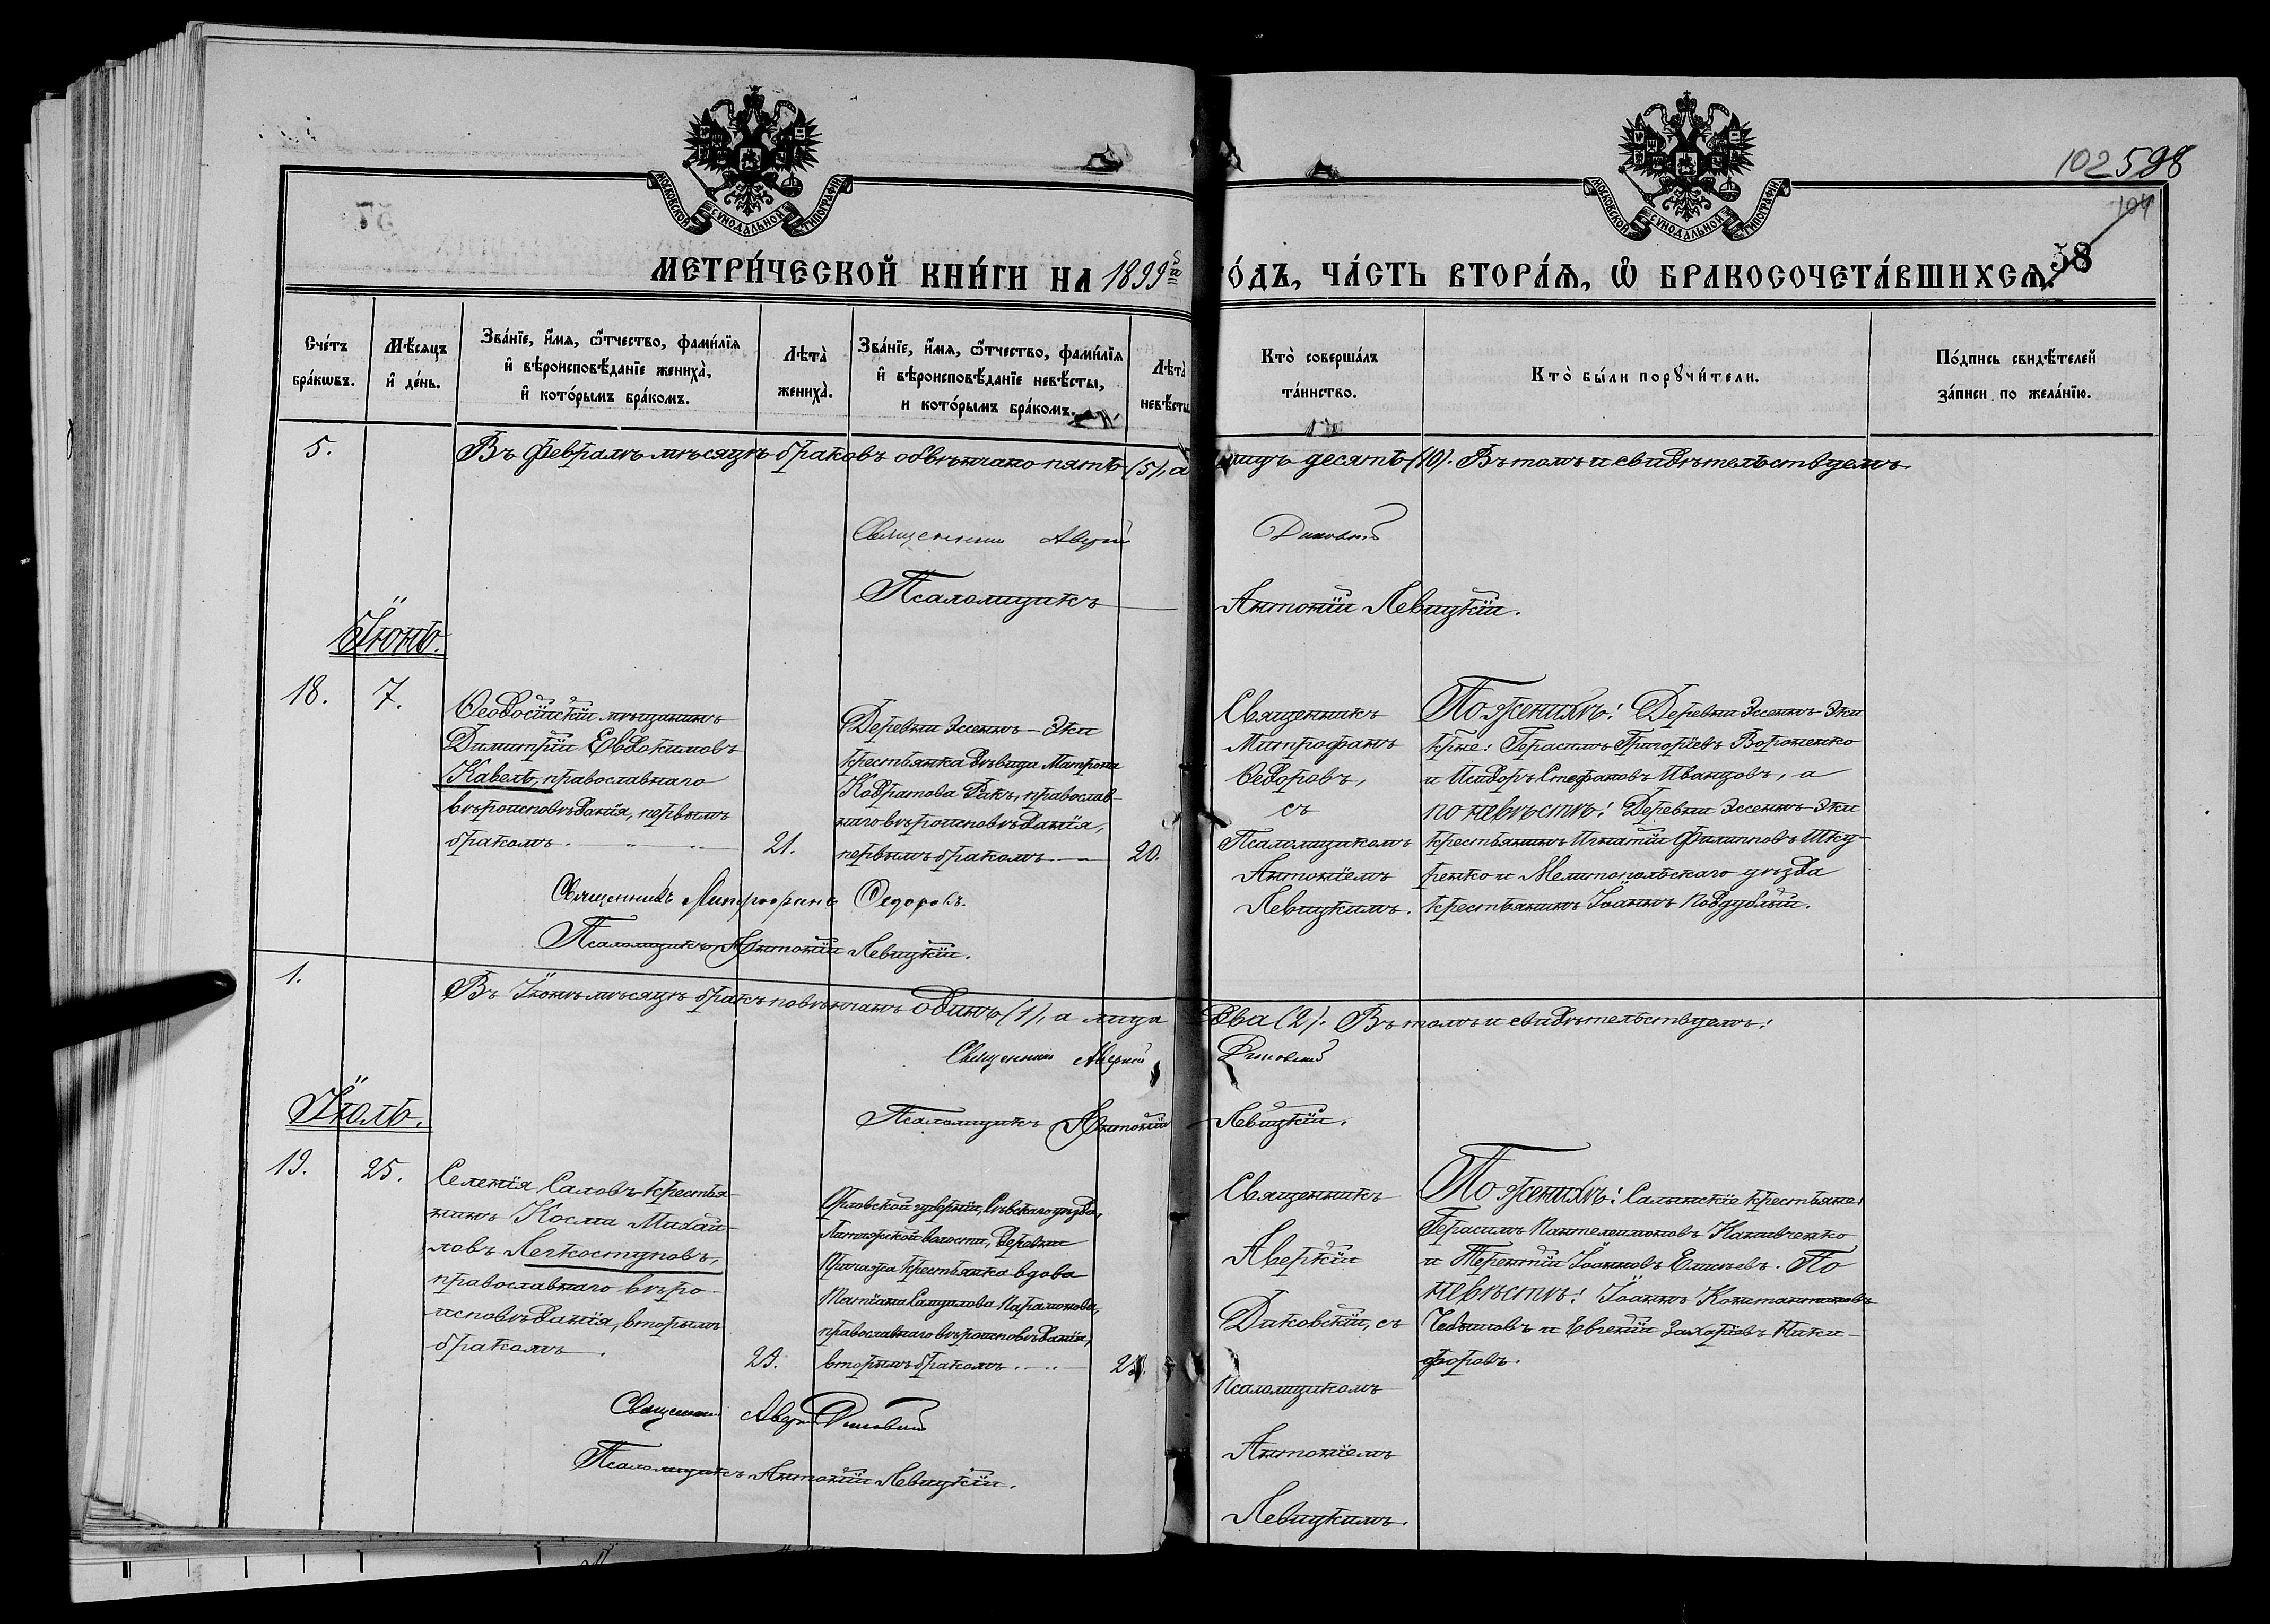 МОСКОВСКОЙ СѴНОДАЛЬНОЙ ТИПОГРАФІИ.
МОСКОВСКОЙ СѴНОДАЛЬНОЙ ТИПОГРАФІИ.
102 598
104
58
МЕТРИ́ЧЕСКОЙ КНИ́ГИ НА 1899й ГО́ДЪ, ЧА́СТЬ ВТОРА́Я, Ѡ҆ БРАКОСОЧЕТА́ВШИХСЯ.
Сче́тъ бра́кѡвъ.
Мѣ́сяцъ и҆ де́нь.
Зва́нїе, и҆́мя, ѻ҆́тчество, фами́лїя
и҆ вѣроисповѣ́данїе жениха̀,
и҆ кото́рымъ бра́комъ.
Лѣта̀ жениха̀.
Зва́нїе, и҆́мя, ѻ҆́тчество, фами́лїя
и҆ вѣроисповѣ́данїе невѣ́сты,
и кото́рымъ бра́комъ.
Лѣта̀ невѣ́сты
Кто̀ соверша́лъ
та́инство.
Кто̀ бы́ли порꙋчи́тели.
По́дпись свидѣ́телей
за́писи по жела́нїю.
5.
Въ Февралѣ мѣсяцѣ браковъ обвѣнчано пять (5), а лицъ десять (10). Въ томъ и свидѣтельствуемъ
Священникъ Аверкій Диковскій
Псаломщикъ Антоній Левицкій.
Іюнь.
18.
7.
Ѳеодосійскій мѣщанинъ
Димитрій Евдокимовъ
Кавель, православнаго
вѣроисповѣданія, первымъ
бракомъ.
21.
Деревни Эссенъ-Эки
крестьянка дѣвица Матрона
Кодратова Ракъ, православ-
наго вѣроисповѣданія,
первымъ бракомъ.
20.
Священникъ
Митрофанъ
Ѳедоровъ,
съ
Псаломщикомъ
Антоніемъ
Левицкимъ.
По женихѣ: Деревни Эссенъ-Эки
крне: Герасимъ Григоріевъ Вороненко
и Исидоръ Стефановъ Иванцовъ, а
по невѣстѣ: Деревни Эссенъ-Эки
крестьянинъ Игнатій Филипповъ Шку-
ренко и Мелитопольскаго уѣзда
крестьянинъ Іоаннъ Поддубный.
Священникъ Митрофанъ Ѳедоровъ.
Псаломщикъ Антоній Левицкій.
1.
Въ Іюнѣ мѣсяцѣ бракъ повѣнчанъ одинъ (1), а лица два (2). Въ томъ и свидѣтельствуемъ:
Священникъ Аверкій Диковскій
Псаломщикъ Антоній Левицкій.
Іюль.
19.
25.
Селенія Саловъ крестья-
нинъ Косма Михай-
ловъ Легкоступовъ,
православнаго вѣро-
исповѣданія, вторымъ
бракомъ.
29.
Орловской губерніи, Сѣвскаго уѣзда,
волости, деревни
крестьянка вдова
Татіана Самуилова Парамонова,
православнаго вѣроисповѣданія,
вторымъ бракомъ.
Священникъ
Аверкій
Диковскій, съ
Псаломщикомъ
Антоніемъ
Левицкимъ.
По женихѣ: Салынскіе крестьяне:
Герасимъ Пантелеимоновъ Каливченко
и Терентій Іоанновъ Елисѣевъ. По
невѣстѣ: Іоаннъ Константиновъ
и Евгеній Захаріевъ Ники-
форовъ.
Священникъ Аверкій Диковскій
Псаломщикъ Антоній Левицкій.